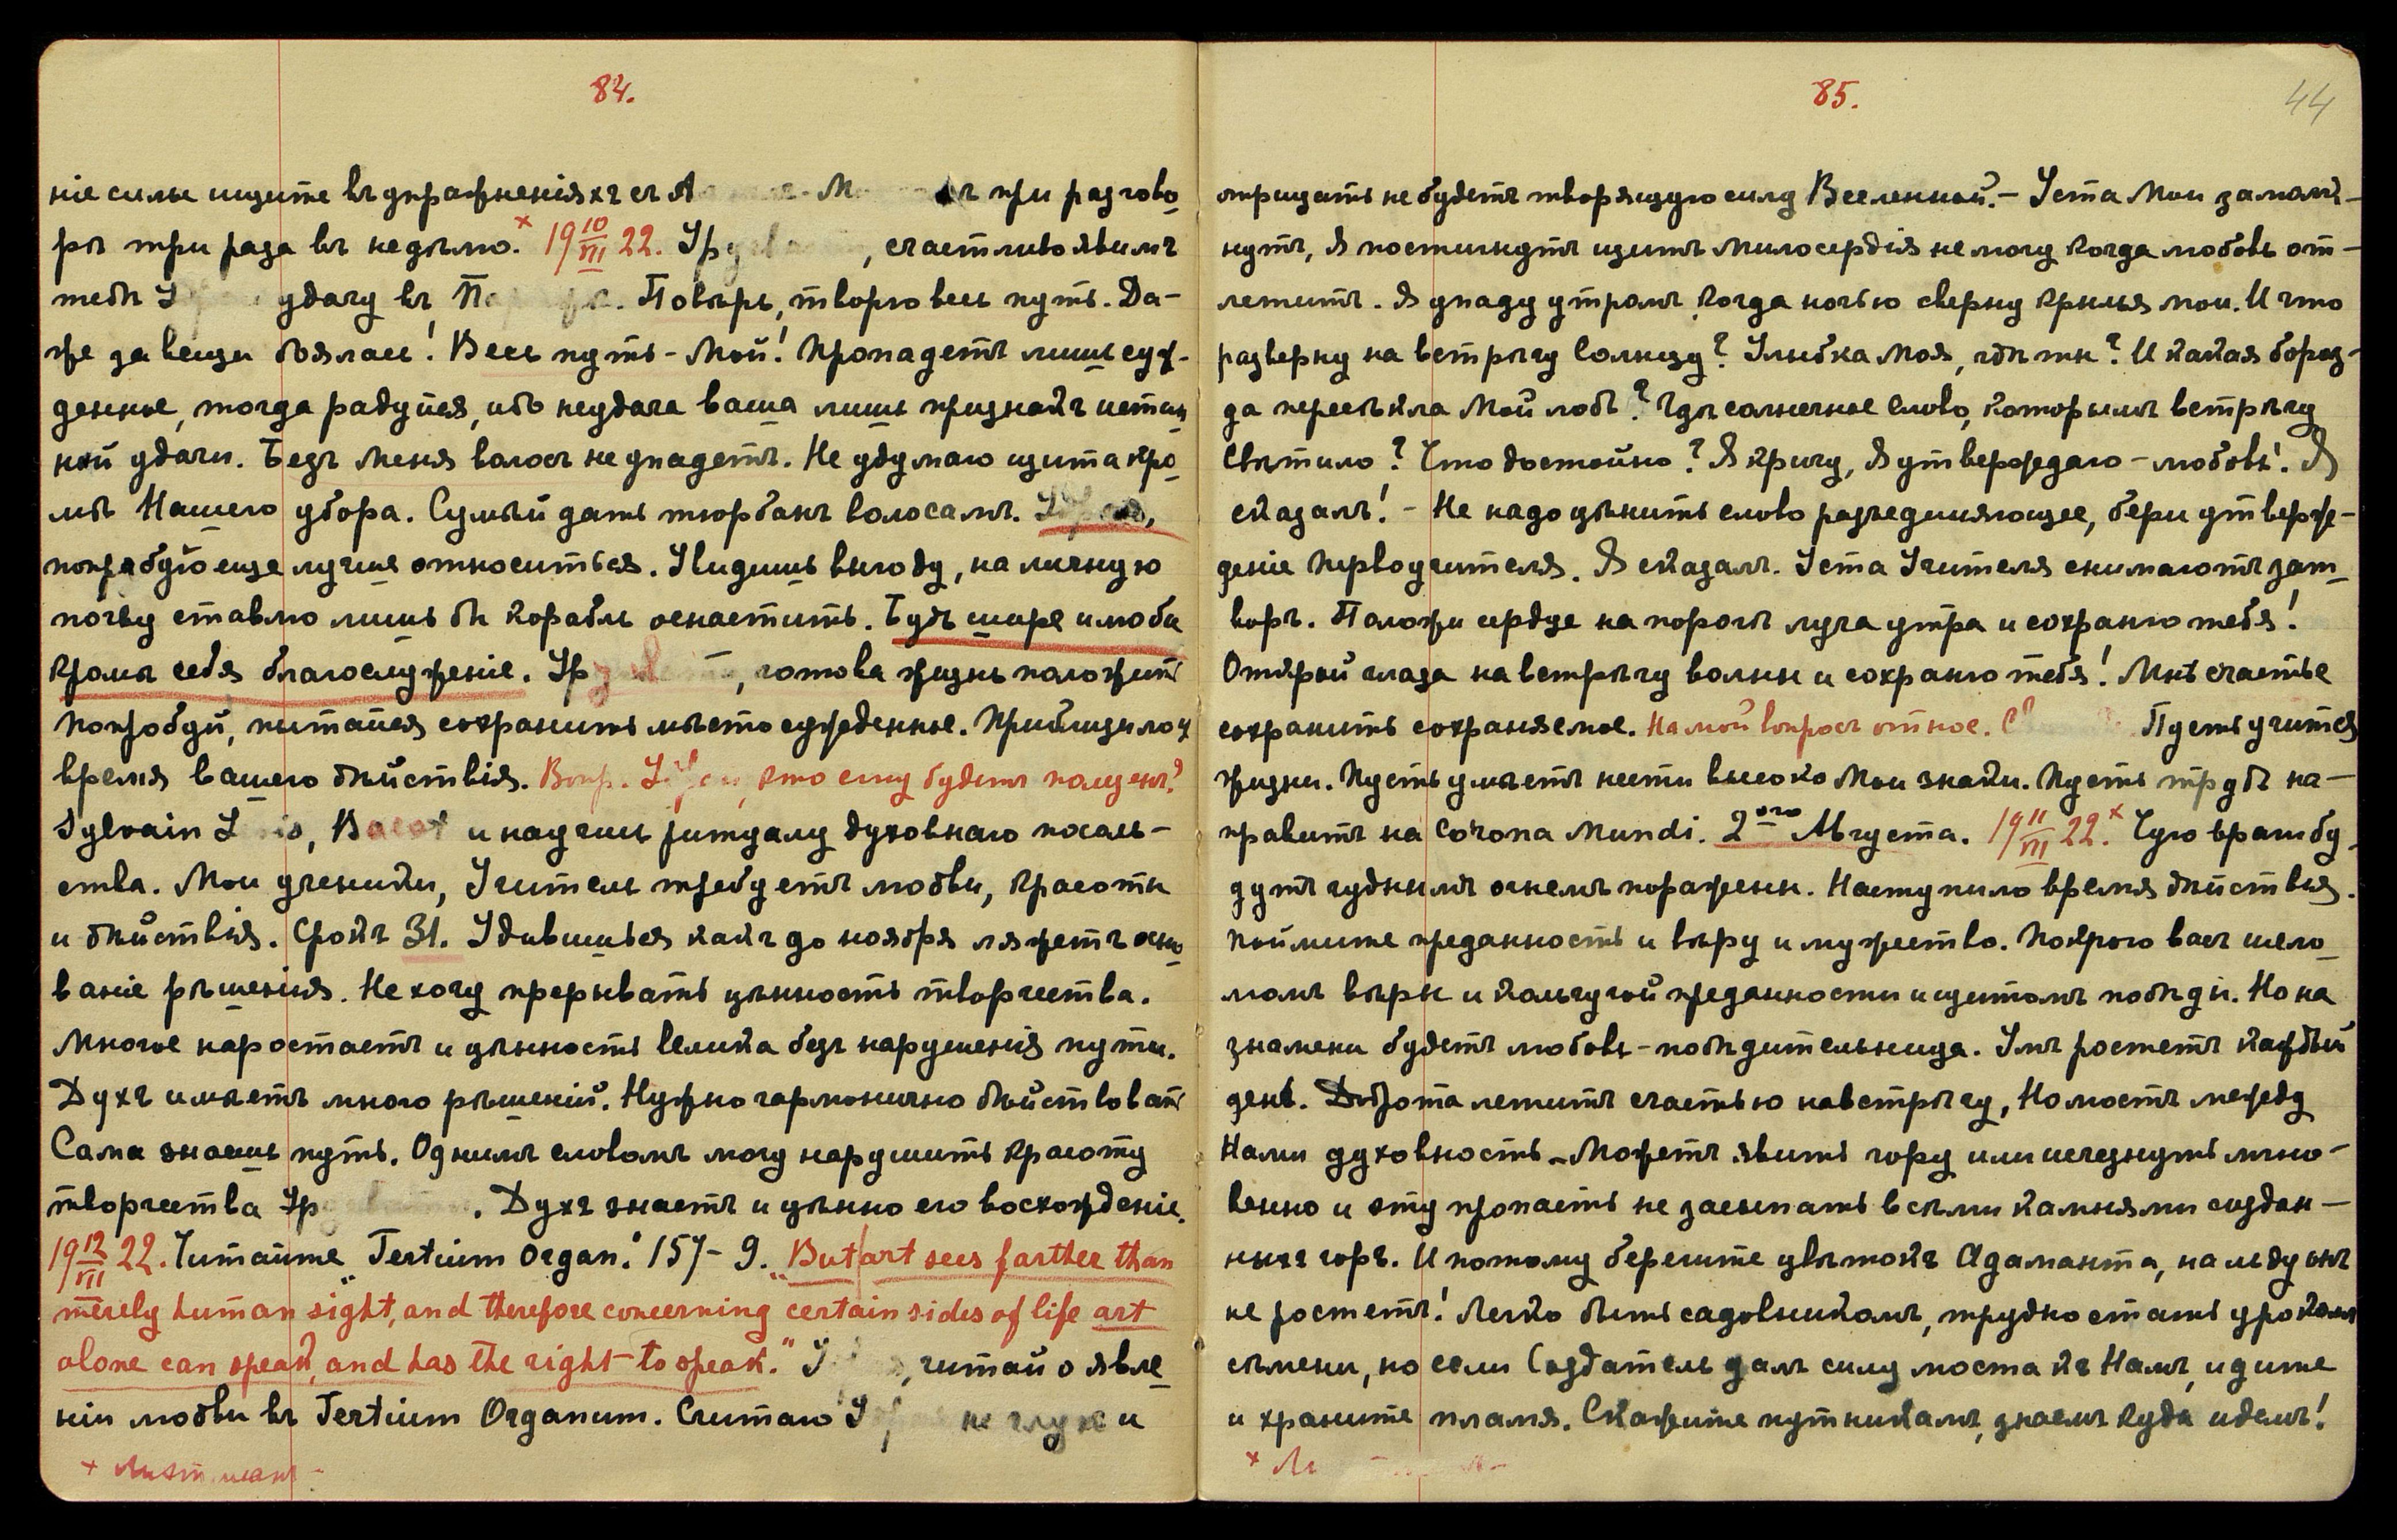 84.
ніе силы ищите въ упражненіяхъ съ при разгово
рѣ три раза въ недѣлю.× 19 10/VII 22. счастливо явимъ
тебѣ удачу въ Повѣрь, творю весь путь. Да-
же за вещи боялась! Весь путь - Мой! Пропадетъ лишь суж-
денное, тогда радуйся, ибо неудача ваша лишь признакъ истин
ной удачи. Безъ Меня волосъ не упадетъ. Не удумаю щита кро
мѣ Нашего убора. Сумѣй дать тюрбанъ волосамъ.
попробую еще лучше относиться. Увидишь выгоду, на личную
почву ставлю лишь бы корабль оснастить. Будь шире и люби
кромѣ себя благослуженіе. готова жизнь положить
Попробуй, пытайся сохранить мѣсто сужденное. Приблизилось
время вашего дѣйствія. Вопр. кто ему будетъ полезенъ?
Sylvain и научись ритуалу духовнаго посоль-
ства. Мои ученики, Учитель требуетъ любви, красоты
и дѣйствія. Срокъ 31. Удивишься какъ до ноября ляжетъ осно
ваніе рѣшенія. Не хочу прерывать цѣнность творчества.
Многое наростаетъ и цѣнность велика безъ нарушенія пути.
Духъ имѣетъ много рѣшеній. Нужно гармонично дѣйствовать
Сама знаешь путь. Однимъ словомъ могу нарушить красоту
творчества Духъ знаетъ и цѣнно его восхожденіе.
19 12/VII 22. Читайте „Tertium Organ." 157-9. „But art sees farther than
merely human sight, and therefore concerning certain sides of life art
alone can speak, and has the right to speak." читай о явле
ніи любви въ Tertium Organum. Считаю не глухъ и
×
85.
44
отрицать не будетъ творящую силу Вселенной. - Уста Мои замолк-
нутъ, Я постигнутъ щитъ Милосердія не могу когда любовь от-
летитъ. Я упаду утромъ когда ночью сверну крылья мои. И что
разверну на встрѣчу Солнцу? Улыбка Моя, гдѣ ты? И какая бороз-
да пересѣкла Мой лобъ? Гдѣ солнечное слово, которымъ встрѣчу
Свѣтило? Что достойно? Я кричу, Я утверждаю - любовь! Я
сказалъ! - Не надо цѣнить слово разъединяющее, бери утверж-
деніе Первоучителя. Я сказалъ. Уста Учителя снимаютъ зат
воръ. Положи сердце на порогъ луча утра и сохраню тебя!
Открой глаза на встрѣчу волны и сохраню тебя! Мнѣ счастье
сохранить сохраняемое. На мой вопросъ относ. Пусть учится
жизни. Пусть умѣетъ нести высоко Мои знаки. Пусть трудъ на-
правитъ на Corona Mundi. 2-ого Августа. 19 11/VII 22.× Чую враги бу
дутъ чуднымъ огнемъ поражены. Наступило время дѣйствія.
Поймите преданность и вѣру и мужество. Покрою васъ шело
момъ вѣры и кольчугой преданности и щитомъ побѣды. Но на
знамени будетъ любовь - побѣдительница. Умъ ростетъ каждый
день. Доброта летитъ счастью навстрѣчу, Но мостъ между
Нами духовность. Можетъ явить гору или исчезнуть мгно-
венно и эту пропасть не засыпать всѣми камнями создан-
ныхъ горъ. И потому берегите цвѣтокъ Адаманта, на льду онъ
не ростетъ! Легко быть садовникомъ, трудно стать урокомъ
сѣмени, но если Создатель далъ силу моста къ Намъ, идите
и храните пламя. Скажите путникамъ, знаемъ куда идемъ!
×